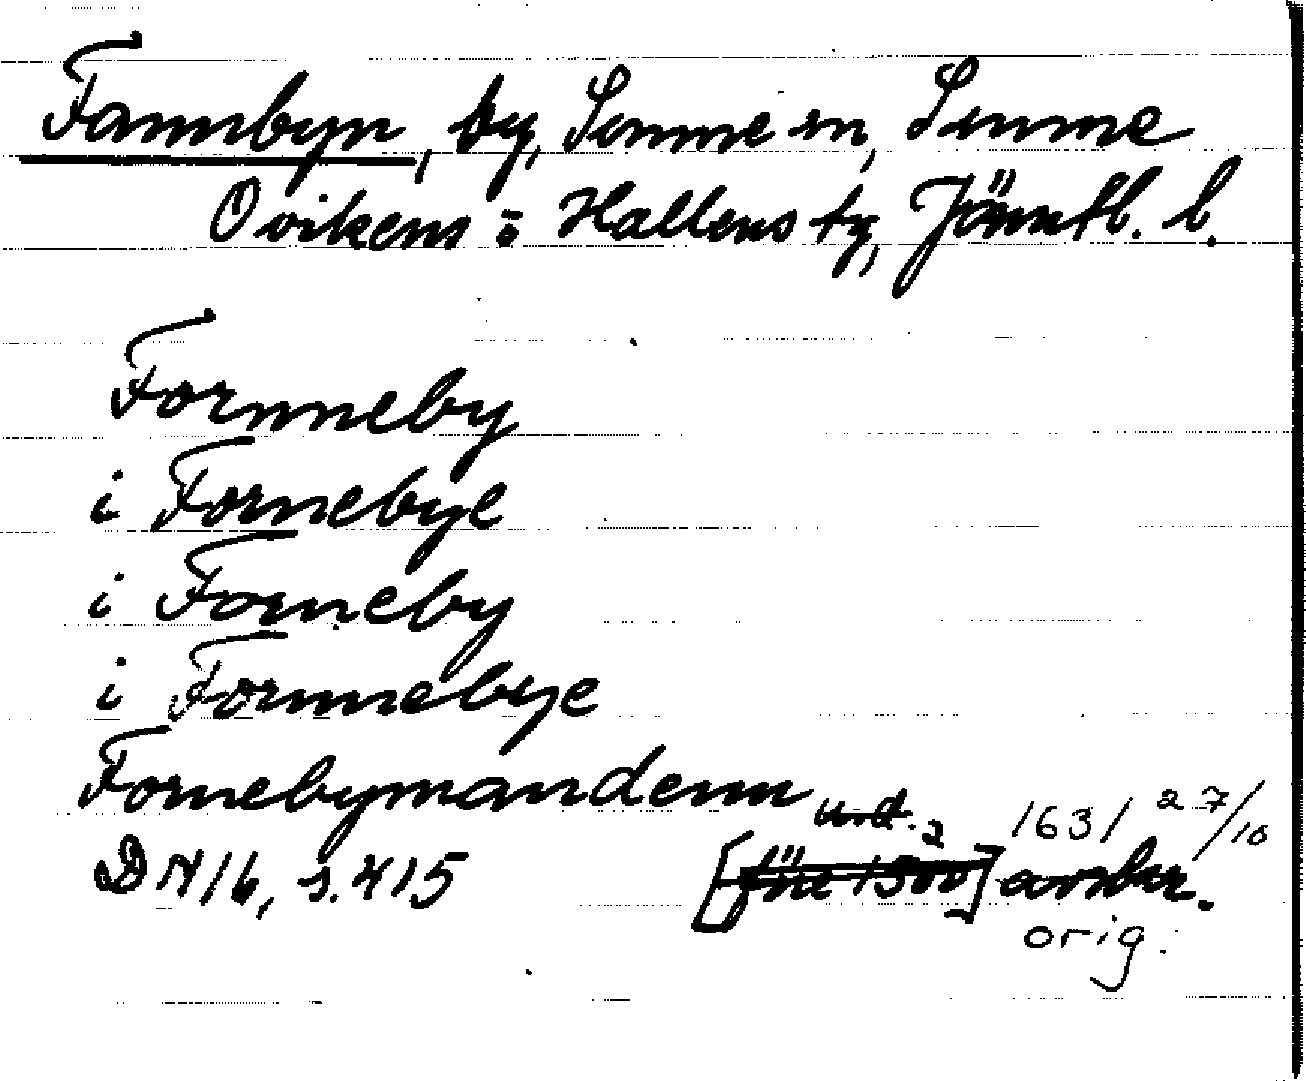 Fannbyn, by, Sunne sn, Sunne
Ovikens o Hallens tg, Jämtl. l.
Fornneby
i Fornebye
i Forneby
i Fornnebye
Fornebymandenn u.d. 1631 27/10
DN 16, s. 415 [före 1500] avskr.
orig.